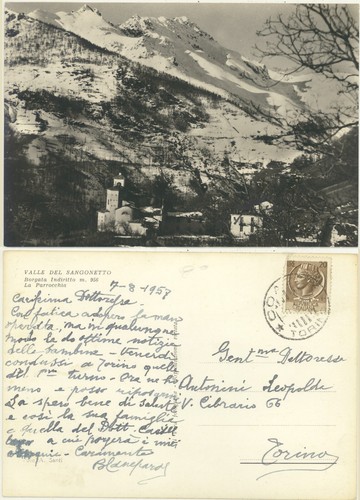 VALLE DEL SANGONETTO
Borgata Indiritto m. 956
La Parrocchia
7-8-1958
Carissima Dottoressa
Con fatica adopero la man
ma in qualunque
modo le do ottime notizie
delle bambine - Venerdi
condussi a Torino quelle
del 1° turno - Ora ne ho
meno e posso riposarmi
La spero bene di salute
e così la sua famiglia
e quella del Dott.
a cui porgerà i miei
Caramente
Gent.ma Dottoressa
Antonini Leopolda
V. Cibrario 66
Torino
TORINO